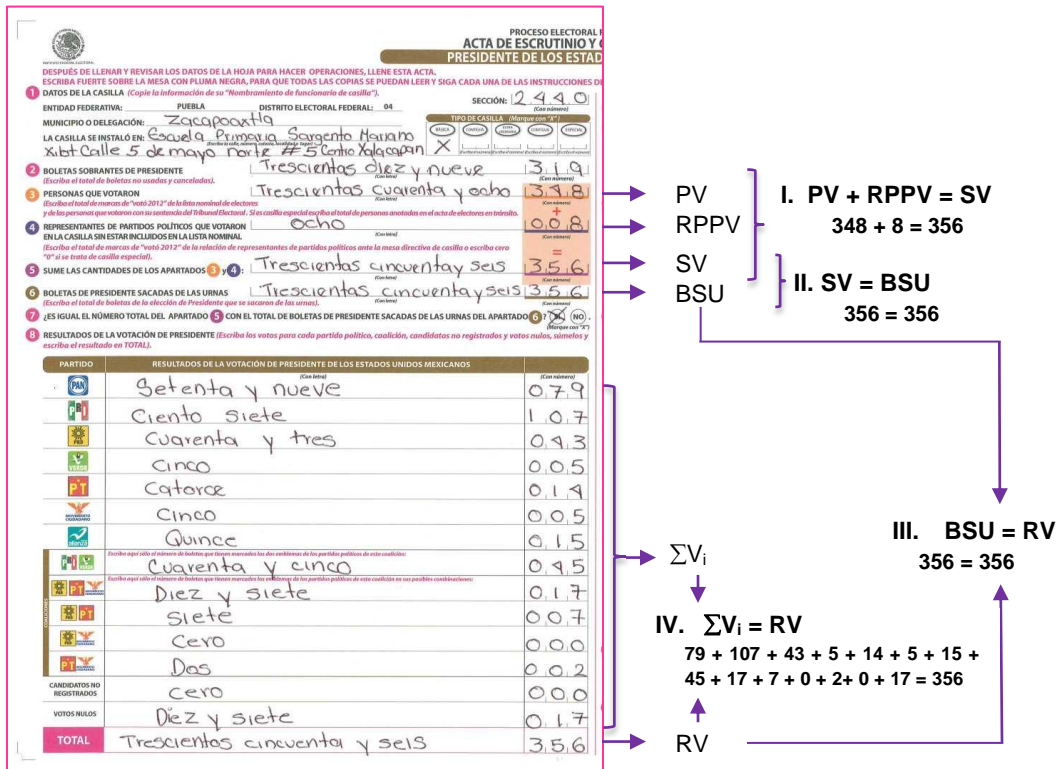 INSTITUTO FEDERAL ELECTORAL
PROCESO ELECTORAL
ACTA DE ESCRUTINIO Y
PRESIDENTE DE LOS ESTAD
DESPUÉS DE LLENAR Y REVISAR LOS DATOS DE LA HOJA PARA HACER OPERACIONES, LLENE ESTA ACTA.
ESCRIBA FUERTE SOBRE LA MESA CON PLUMA NEGRA, PARA QUE TODAS LAS COPIAS SE PUEDAN LEER Y SIGA CADA UNA DE LAS INSTRUCCIONES D
1 DATOS DE LA CASILLA (Copie la información de su "Nombramiento de funcionario de casilla").
SECCIÓN: 2440
(Con número)
ENTIDAD FEDERATIVA: PUEBLA DISTRITO ELECTORAL FEDERAL: 04
TIPO DE CASILLA (Marque con "X")
MUNICIPIO O DELEGACIÓN: Zacapoaxtla
BÁSICA CONTIGUA EXTRA ORDINARIA CONTIGUA ESPECIAL
X
LA CASILLA SE INSTALÓ EN: Escuela Primaria Sargento Mariano
(Escriba la calle, número, colonia, localidad o lugar)
Xibt Calle 5 de mayo norte #5 Centro Xalacapan
2 BOLETAS SOBRANTES DE PRESIDENTE Trescientos diez y nueve 319
(Escriba el total de boletas no usadas y canceladas). (Con letra) (Con número)
3 PERSONAS QUE VOTARON Trescientas cuarenta y ocho 348
(Escriba el total de marcas de "votó 2012" de la lista nominal de electores (Con letra) (Con número)
y de las personas que votaron con su sentencia del Tribunal Electoral. Si es casilla especial escriba el total de personas anotadas en el acta de electores en tránsito.
+
4 REPRESENTANTES DE PARTIDOS POLÍTICOS QUE VOTARON EN LA CASILLA SIN ESTAR INCLUIDOS EN LA LISTA NOMINAL ocho 008
(Con letra) (Con número)
(Escriba el total de marcas de "votó 2012" de la relación de representantes de partidos políticos ante la mesa directiva de casilla o escriba cero
"0" si se trata de casilla especial).
=
5 SUME LAS CANTIDADES DE LOS APARTADOS 3 y 4: Trescientas cincuenta y seis 356
(Con letra) (Con número)
6 BOLETAS DE PRESIDENTE SACADAS DE LAS URNAS Trescientas cincuenta y seis 356
(Escriba el total de boletas de la elección de Presidente que se sacaron de las urnas). (Con letra) (Con número)
7 ¿ES IGUAL EL NÚMERO TOTAL DEL APARTADO 5 CON EL TOTAL DE BOLETAS DE PRESIDENTE SACADAS DE LAS URNAS DEL APARTADO 6? SÍ NO.
(Marque con "X")
8 RESULTADOS DE LA VOTACIÓN DE PRESIDENTE (Escriba los votos para cada partido político, coalición, candidatos no registrados y votos nulos, súmelos y
escriba el resultado en TOTAL).
PARTIDO RESULTADOS DE LA VOTACIÓN DE PRESIDENTE DE LOS ESTADOS UNIDOS MEXICANOS
(Con letra) (Con número)
PAN Setenta y nueve 079
PRI Ciento siete 107
PRD Cuarenta y tres 043
VERDE Cinco 005
PT Catorce 014
MOVIMIENTO CIUDADANO Cinco 005
alianza Quince 015
COALICIONES
Escriba aquí sólo el número de boletas que tienen marcados los dos emblemas de los partidos políticos de esta coalición:
PRI VERDE Cuarenta y cinco 045
Escriba aquí sólo el número de boletas que tienen marcados los emblemas de los partidos políticos de esta coalición en sus posibles combinaciones:
PRD PT Diez y siete 017
PRD PT siete 007
PRD cero 000
PT Dos 002
CANDIDATOS NO REGISTRADOS cero 000
VOTOS NULOS Diez y siete 017
TOTAL Trescientos cincuenta y seis 356
PV
RPPV
SV
BSU
I. PV + RPPV = SV
348 + 8 = 356
II. SV = BSU
356 = 356
III. BSU = RV
356 = 356
ΣVi
IV. ΣVi = RV
79 + 107 + 43 + 5 + 14 + 5 + 15 +
45 + 17 + 7 + 0 + 2+ 0 + 17 = 356
RV